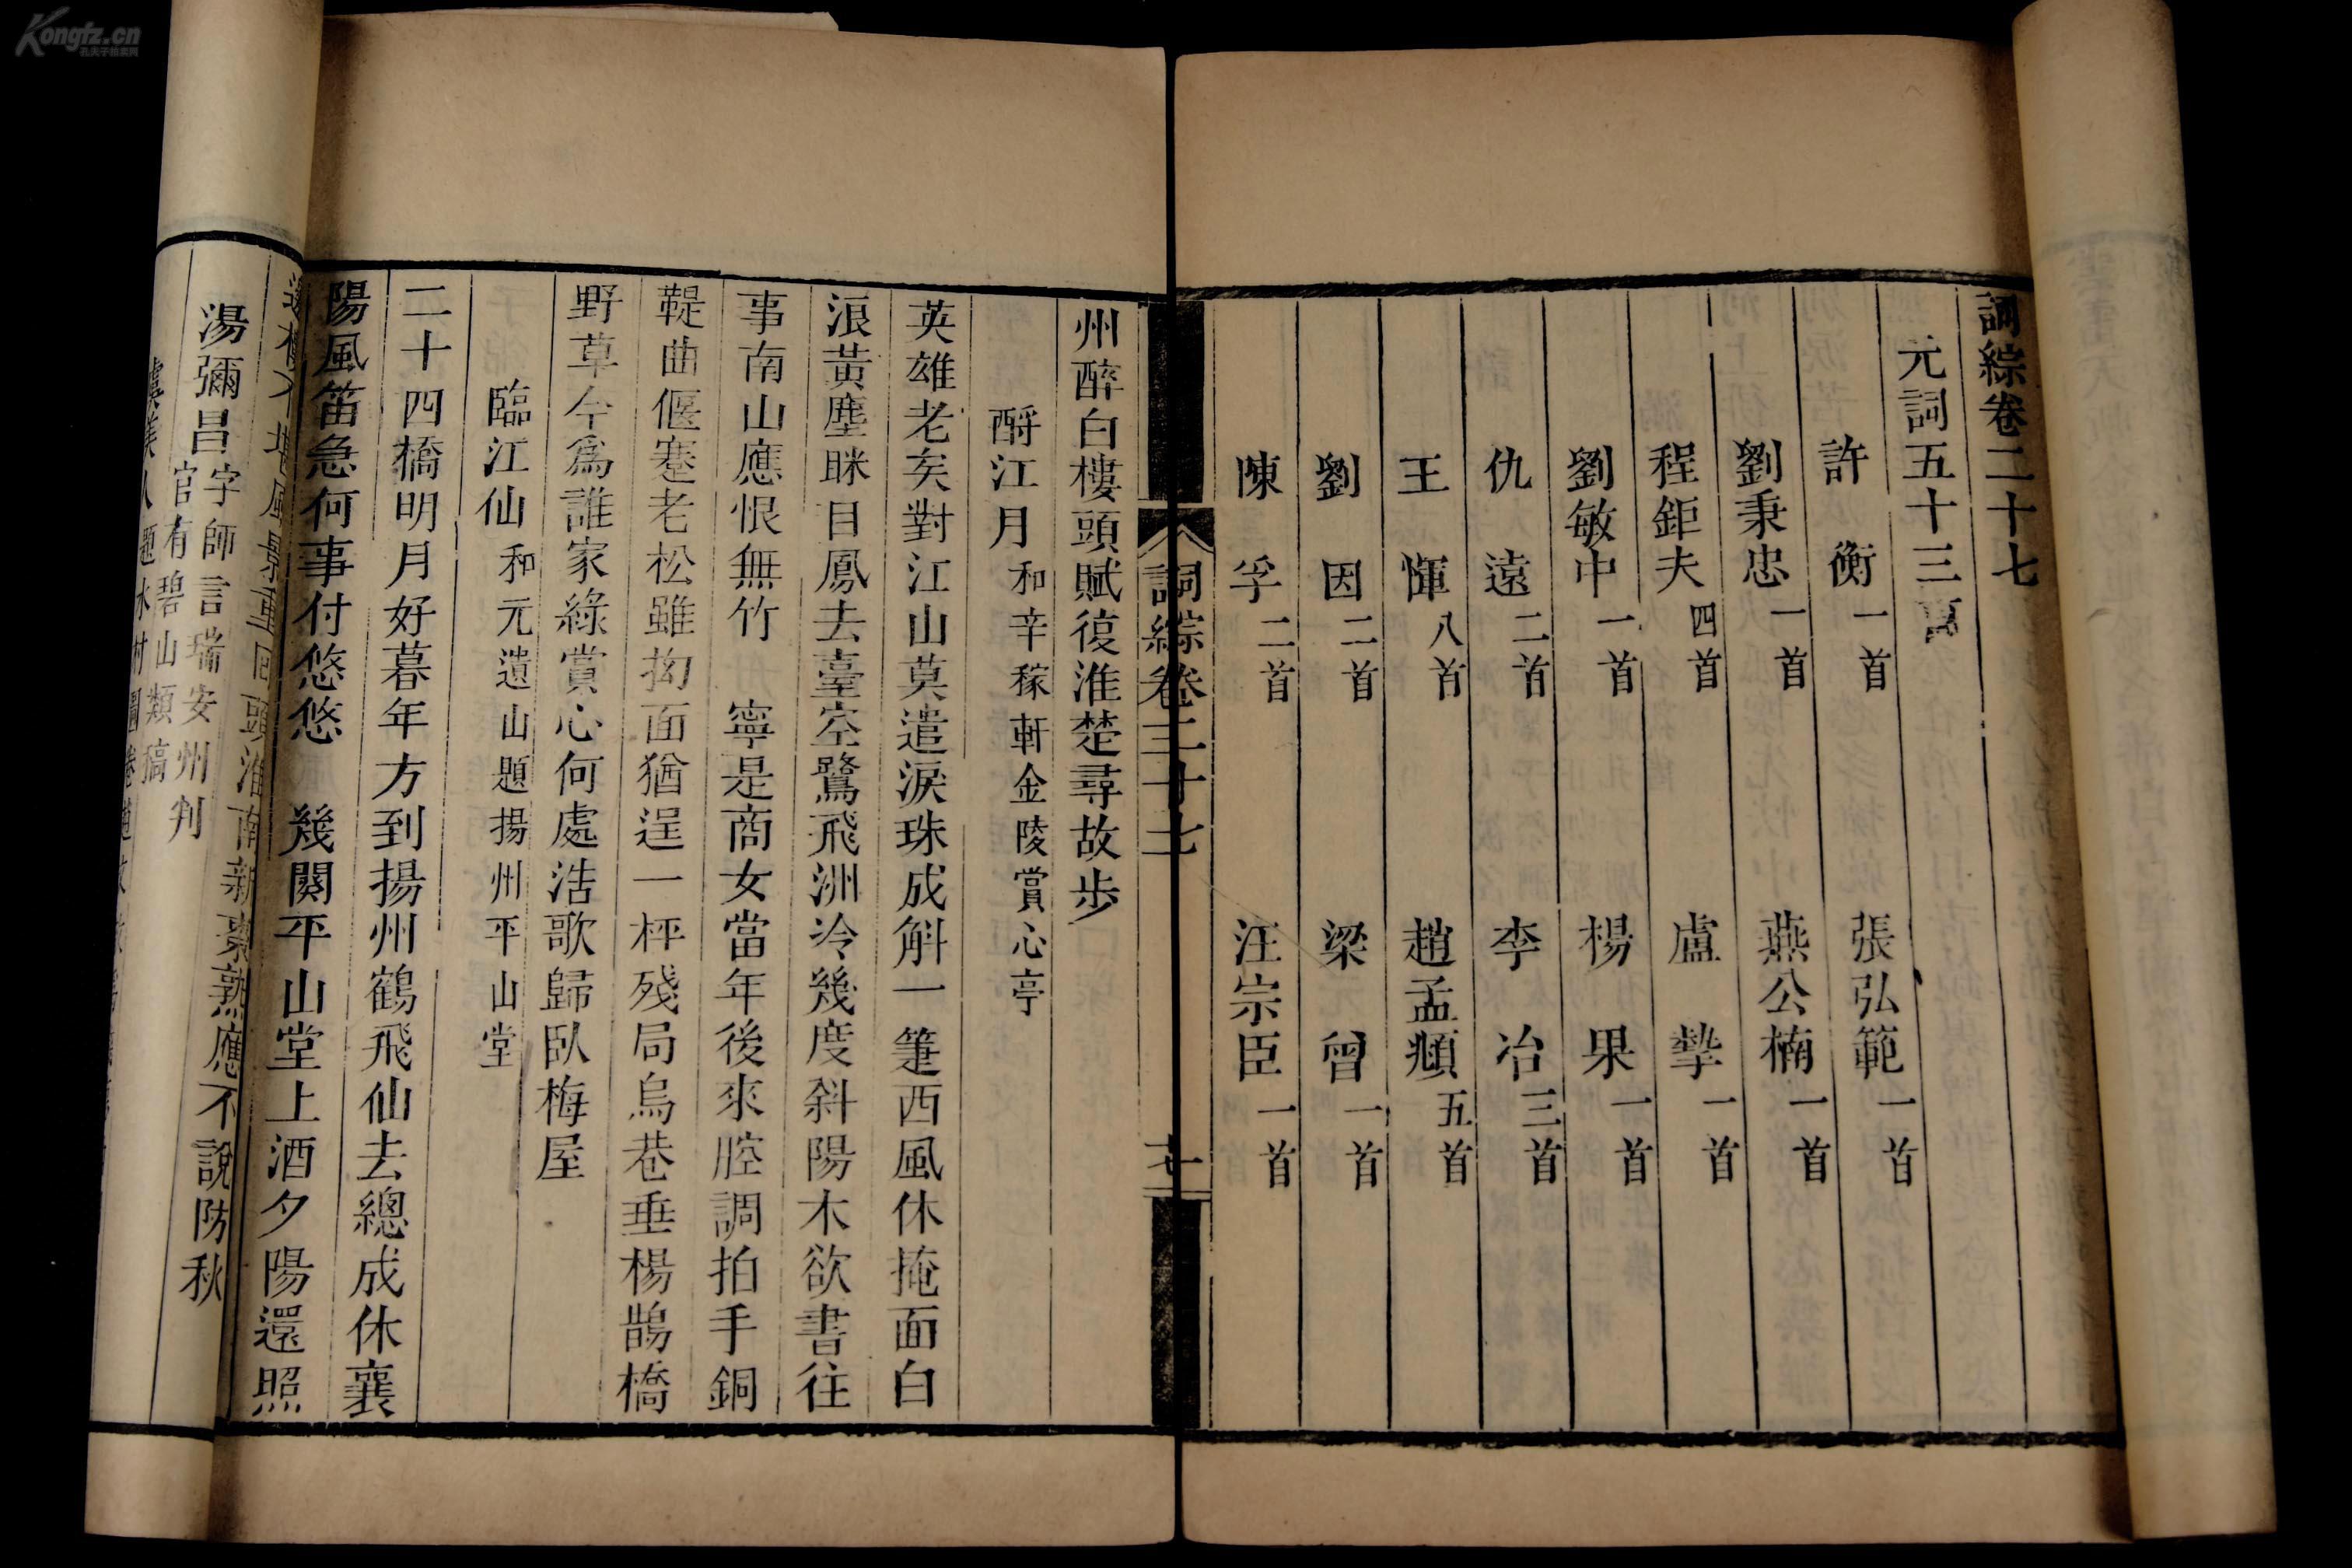 詞綜卷二十七
元詞五十三首
許衡一首 張弘範一首
劉秉忠一首 燕公楠一首
程鉅夫四首 盧摯一首
劉敏中一首 楊果一首
仇遠二首 李冶三首
王惲八首 趙孟頫五首
劉因二首 梁曾一首
陳孚二首 汪宗臣一首
詞綜卷二十七
州醉白樓頭賦復淮楚尋故步
酹江月 和辛稼軒金陵賞心亭
英雄老矣對江山莫遣淚珠成斛一箑西風休掩面白
浪黃塵眯目鳳去臺空鷺飛洲冷幾度斜陽木欲書往
事南山應恨無竹 寧是商女當年後來腔調拍手銅
鞮曲偃蹇老松雖拗面猶逞一枰殘局烏巷垂楊鵲橋
野草今爲誰家綠賞心何處浩歌歸臥梅屋
臨江仙 和元遺山題揚州平山堂
二十四橋明月好暮年方到揚州鶴飛仙去總成休襄
陽風笛急何事付悠悠 幾闋平山堂上酒夕陽還照
風景重回頭淮南新棗熟應不說防秋
湯彌昌 字師言瑞安州判
官有碧山類稿
Kongfz.cn
孔夫子拍卖网